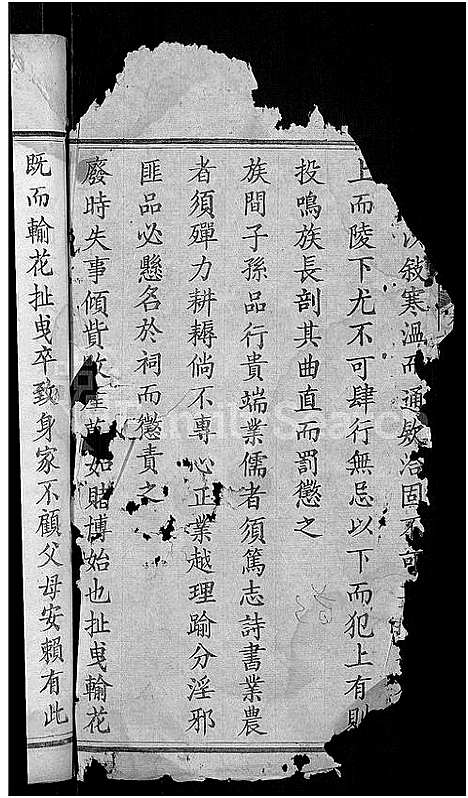 敍寒溫而通欸洽固不可
上而陵下尤不可肆行無忌以下而犯上有則
投鳴族長剖其曲直而罰懲之
族間子孫品行貴端業儒者須篤志詩書業農
者須殫力耕耨倘不專心正業越理踰分淫邪
匪品必懸名於祠而懲責之
廢時失事傾貲敗產莫如賭博始也扯曳輸花
既而輸花扯曳卒致身家不顧父母安賴有此